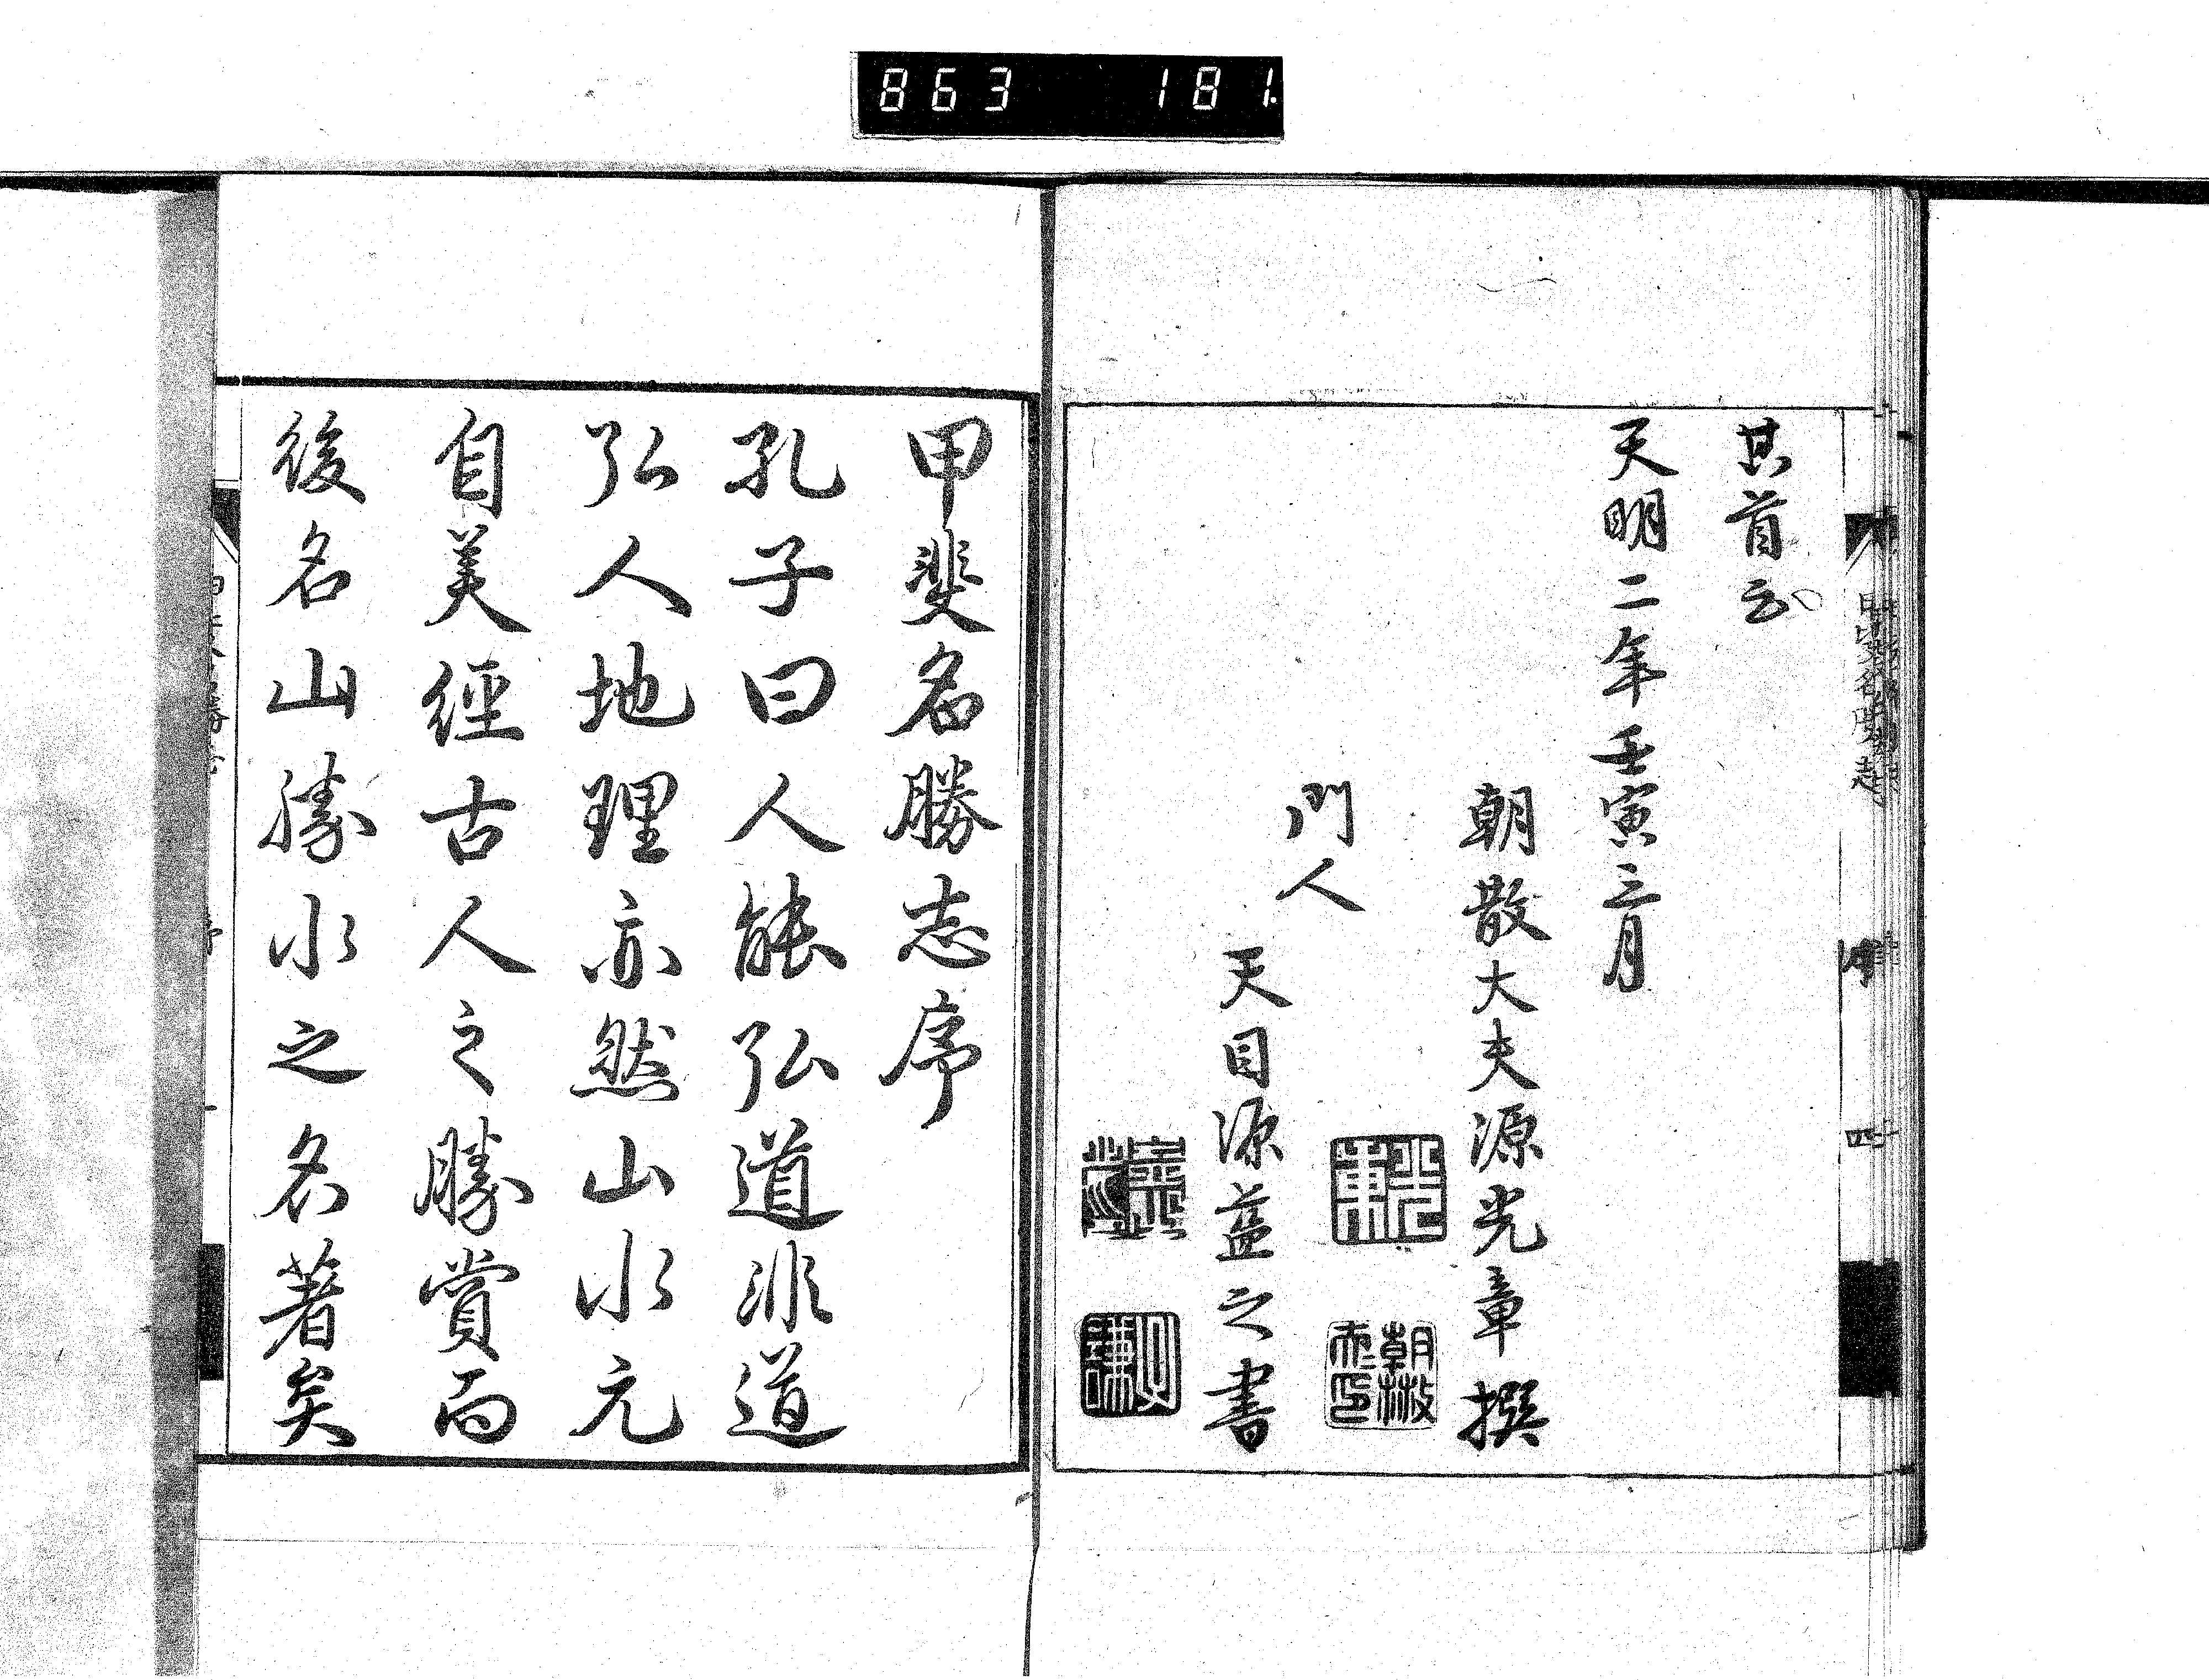 863 181
其首云
天明二年壬寅三月
朝散大夫源光章撰
門人
天目源益之書
甲斐名勝志序
孔子曰人能弘道非道
弘人地理亦然山水元
自美經古人之勝賞而
後名山勝水之名著矣